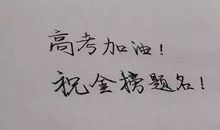 高考加油!
祝金榜题名!